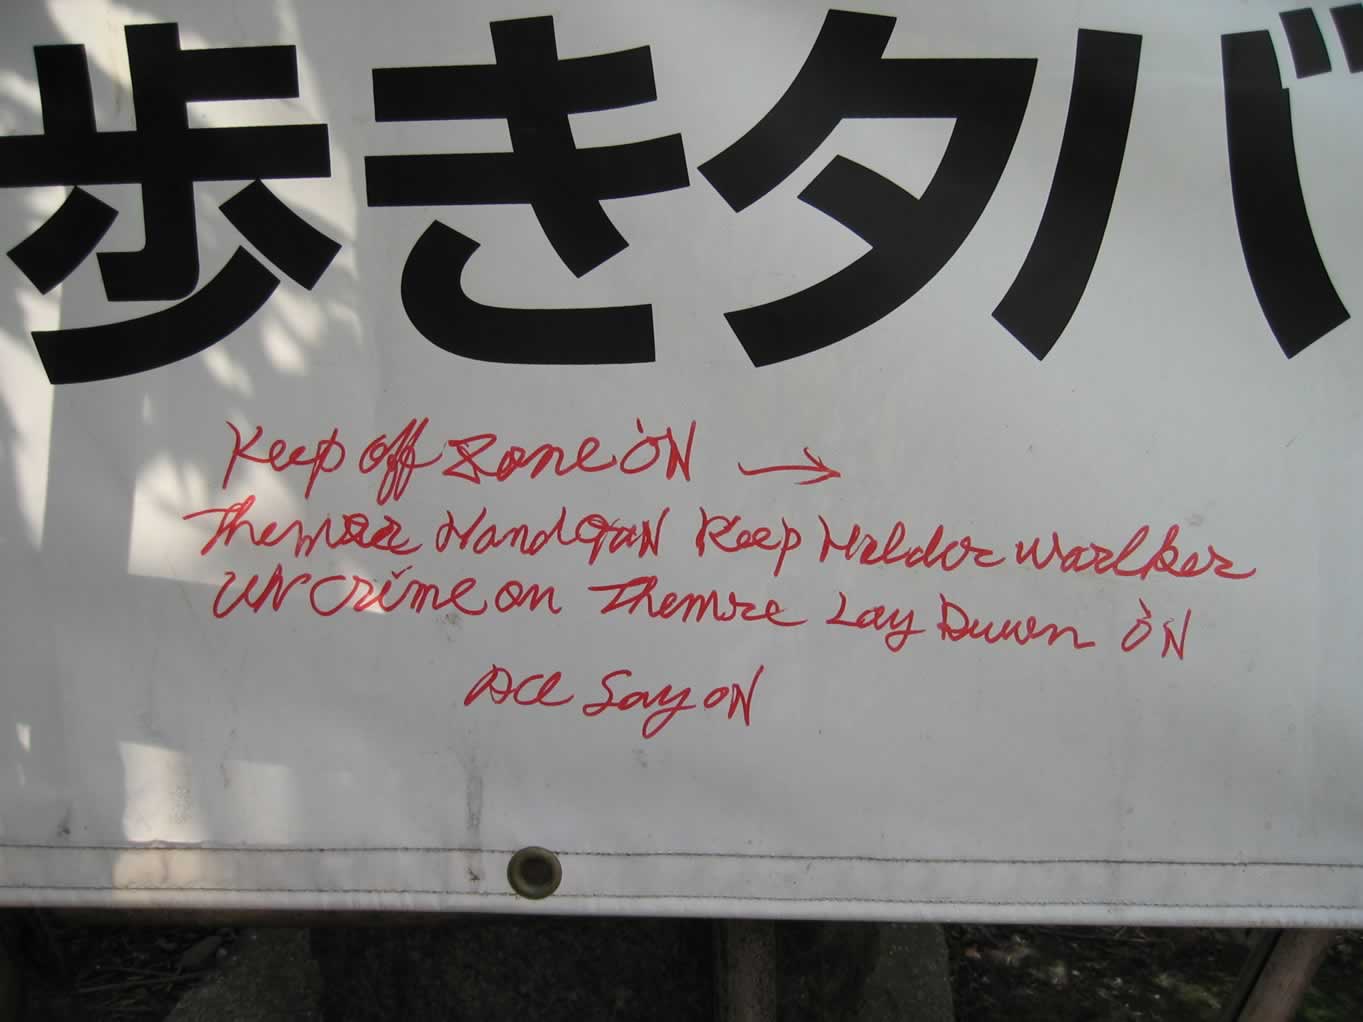 歩きタバ
Keep off zone ON →
Themrse HandgaN Keep Holdor Warlker
UN crime on Themre Lay Duwn ON
Ace Say ON